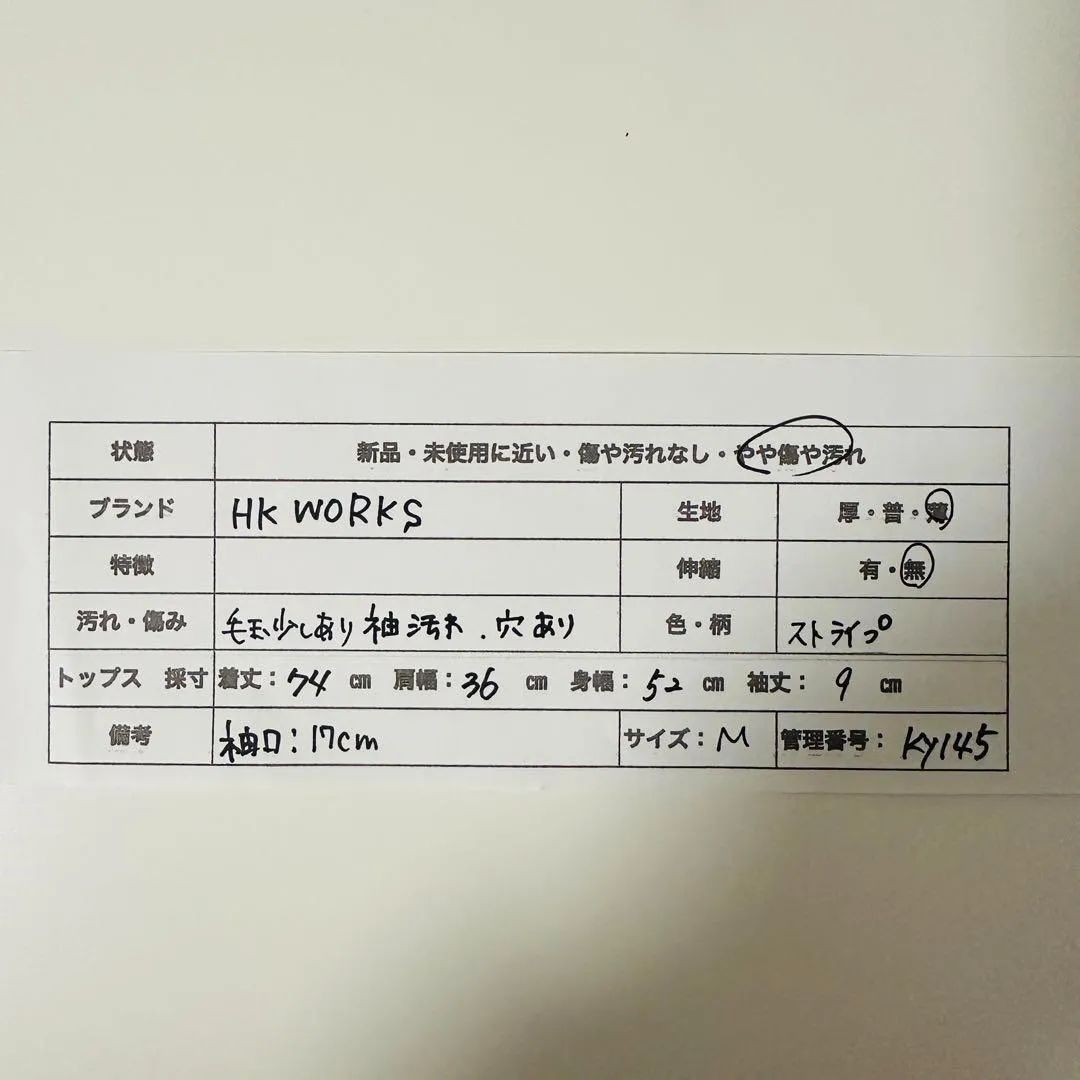 状態 新品・未使用に近い・傷や汚れなし・やや傷や汚れ
ブランド HK WORKS 生地 厚・普・薄
特徴 伸縮 有・無
汚れ・傷み 毛玉少しあり 袖汚れ、穴あり 色・柄 ストライプ
トップス 採寸 着丈：74 cm 肩幅：36 cm 身幅：52 cm 袖丈：9 cm
備考 袖口：17cm サイズ：M 管理番号：KY145